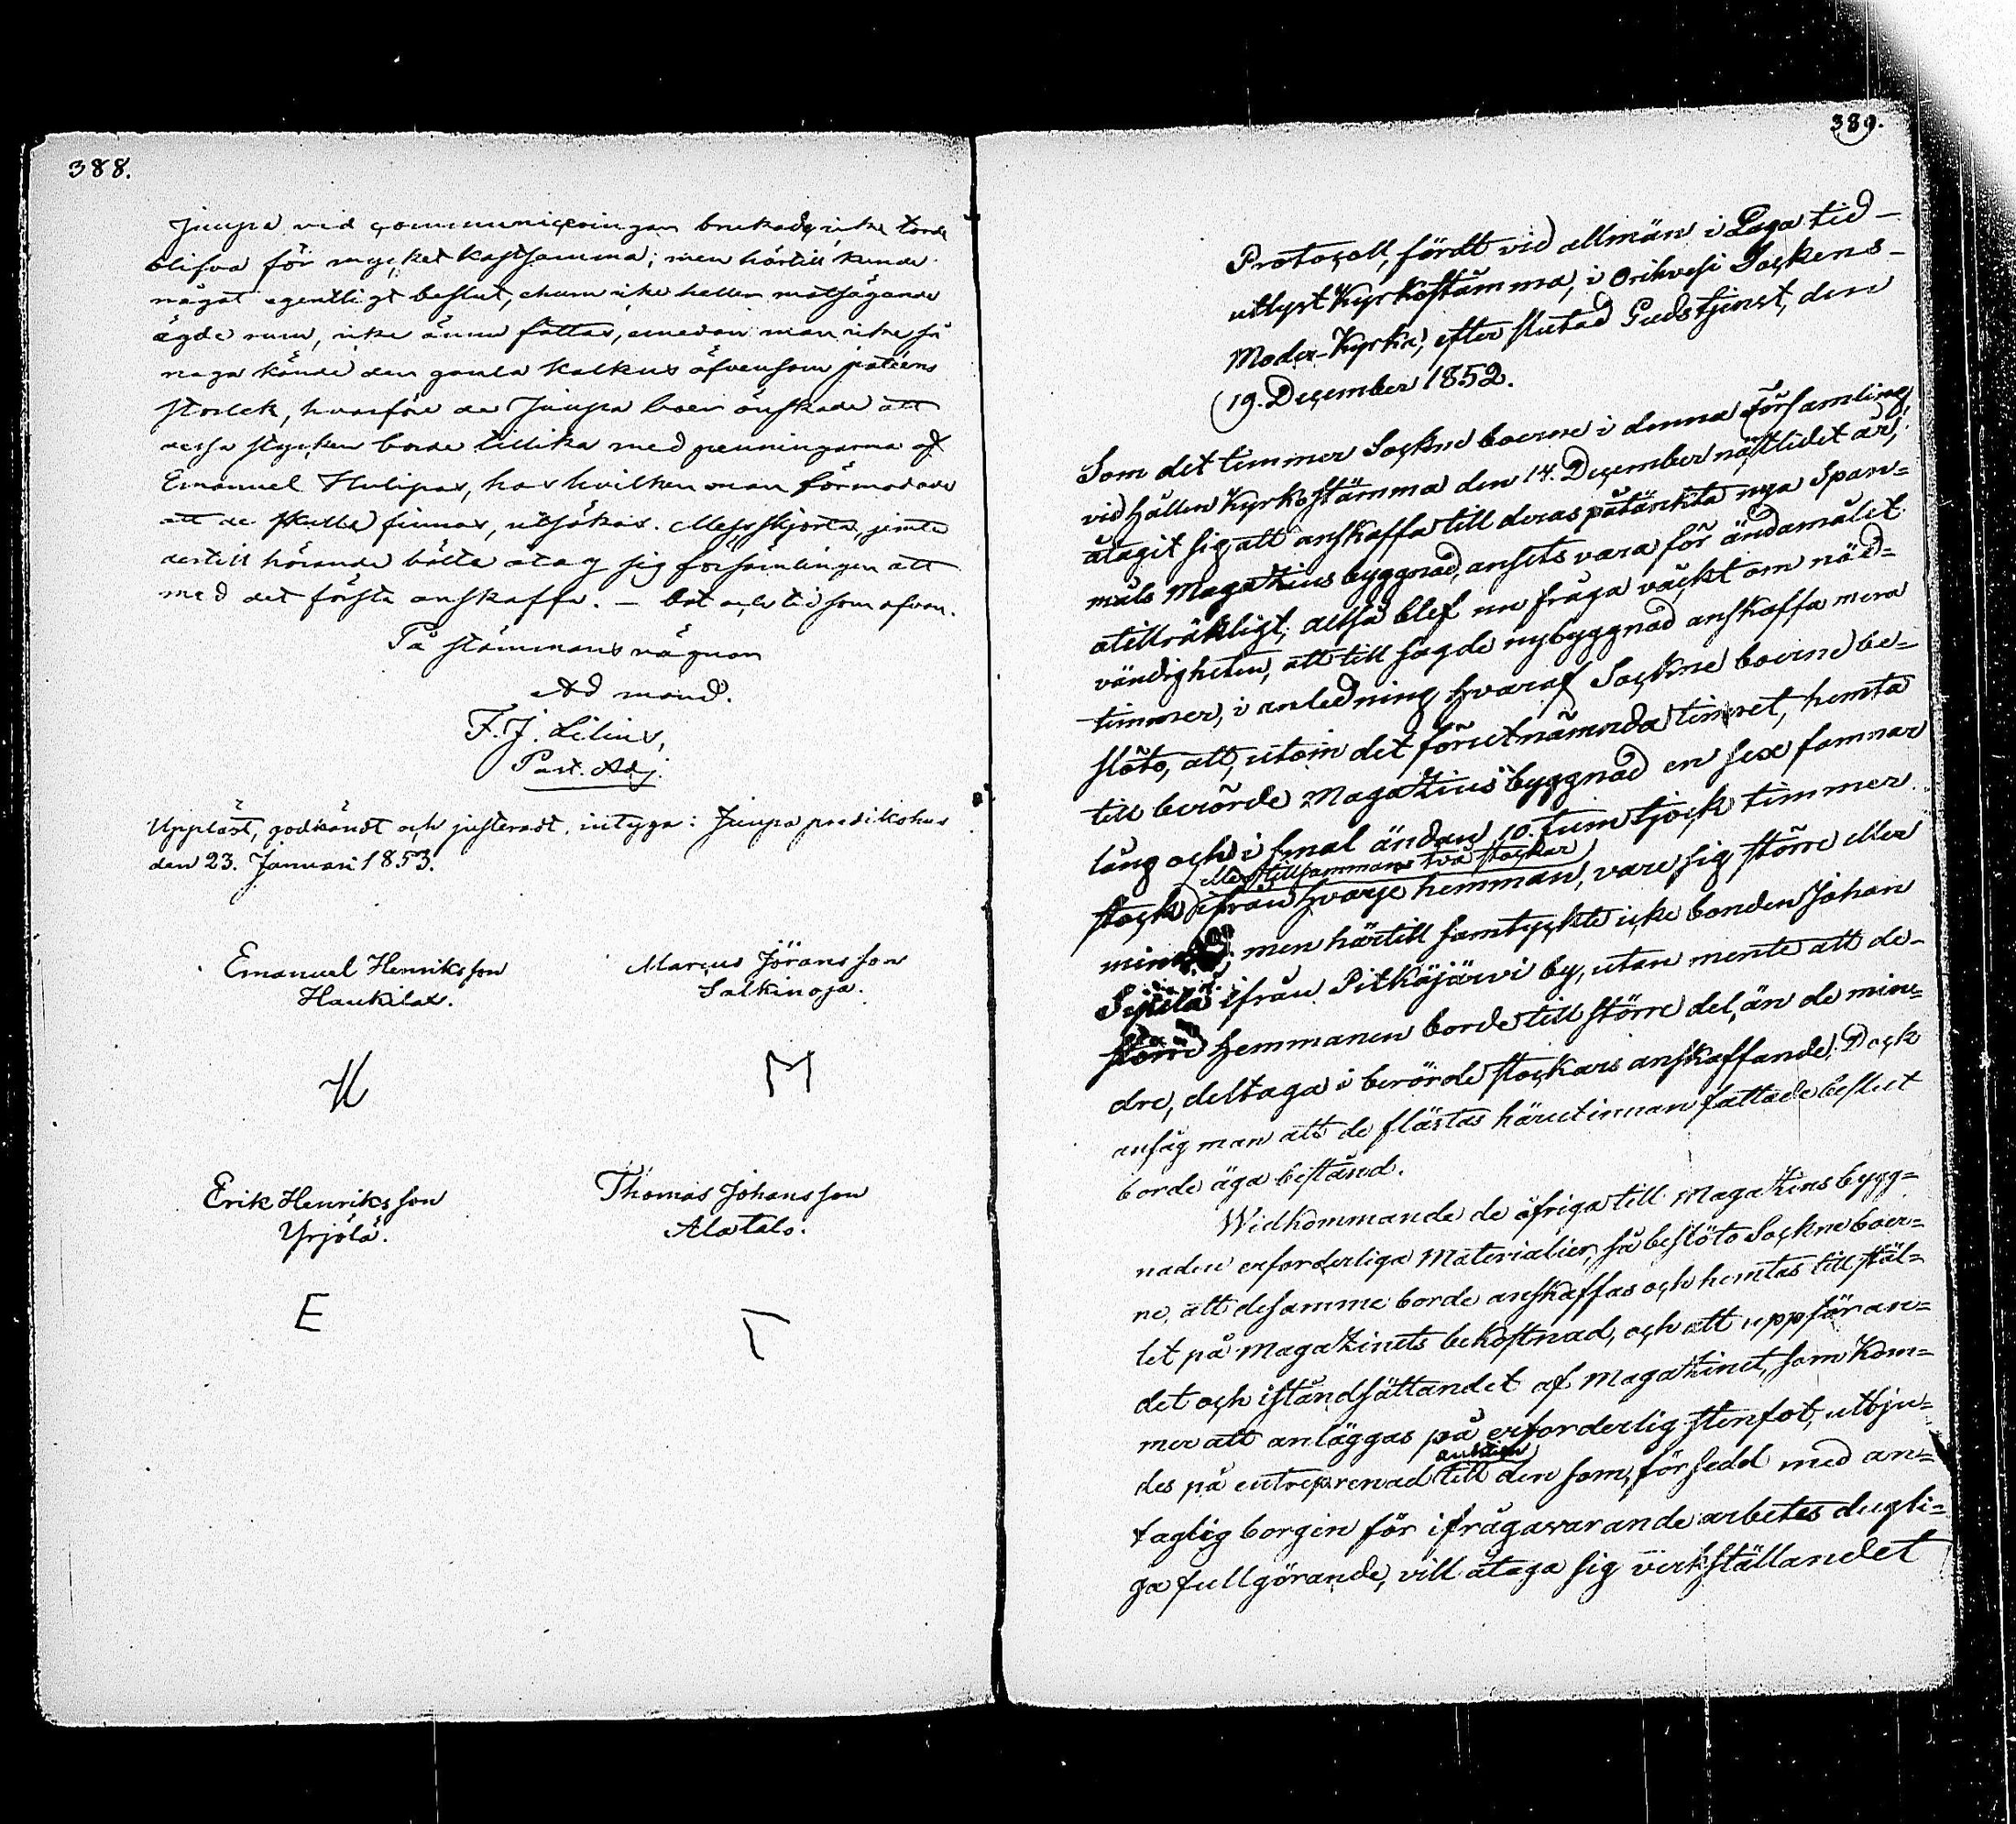 388.
Juupa vid communiceringen brukade, icke torde
blifva för mycket kostsamma; men härtill kunde
något egentligt beslut, ehuru icke heller motsägande
ägde rum, icke ännu fattas, emedan man icke så
noga kände den gamla kalkens äfvensom paténs
storlek, hvarföre de Juupa boer önskade att
dessa stycken borde tillika med penningarna af
Emanuel hos hvilken man förmodade
att de skulle finnas, utsökas. Messskjorta jemte
dertill hörande bälte åtog sig församlingen att
med det första anskaffa. — Ort och tid som ofvan.
På stämmans vägnar
Ad mand.
F. J. Lilius,
Past. Adj.
Uppläst, godkändt och justeradt, intyga: Juupa predikohus
den 23. Januari 1853.
Emanuel Henriksson Marcus Jöransson
Haukilax. Salkinoja.
H M
Erik Henriksson Thomas Johansson
Yrjölä. Alatalo.
E T
389.
Protocoll, fördt vid allmän i Laga tid
utlyst Kyrkostämma, i Orihvesi Sockens
Moder-Kyrka, efter slutad Gudstjenst, den
19. December 1852.
Som det timmer Sockne boerne i denna församling
vid hållen Kyrkostämma den 14. December nästlidet år,
åtagit sig att anskaffa till deras påtänkta nya Span=
måls Magazins byggnad, ansets vara för ändamålet
otillräkligt; altså blef nu fråga väckt om nöd=
vändigheten, att till sagde nybyggnad anskaffa mera
timmer, i anledning hvaraf Sockne boerne be=
slöto, att, utom det förutnämnda timret, hemta
till berörde Magazins byggnad en sex famnar
lång och i smal ändan 10. tum tjock timmer
eller tillsammans två stockar
stock ifrån hvarje hemman, vare sig större eller
mindre; men härtill samtyckte icke bonden Johan
Seppälä ifrån Pitkäjärvi by, utan mente att de
större hemmanen borde till större del, än de min=
dre, deltaga i berörde stockars anskaffande. Dock
ansåg man att de flästas härutinnan fattade beslut
borde äga bestånd.
Widkommande de öfriga till Magazins bygg=
naden erforderliga Materialier, så beslöto Sockne boer=
ne, att desamma borde anskaffas och hemtas till stäl=
let på Magazinets bekostnad, och att uppföran=
det och iståndsättandet af Magazinet, som kom=
mer att anläggas på erforderlig stenfot, utbju=
auktion
des på entreprenad till den som, försedd med an=
taglig borgen för ifrågavarande arbetes dugli=
ga fullgörande, vill åtaga sig verkställandet